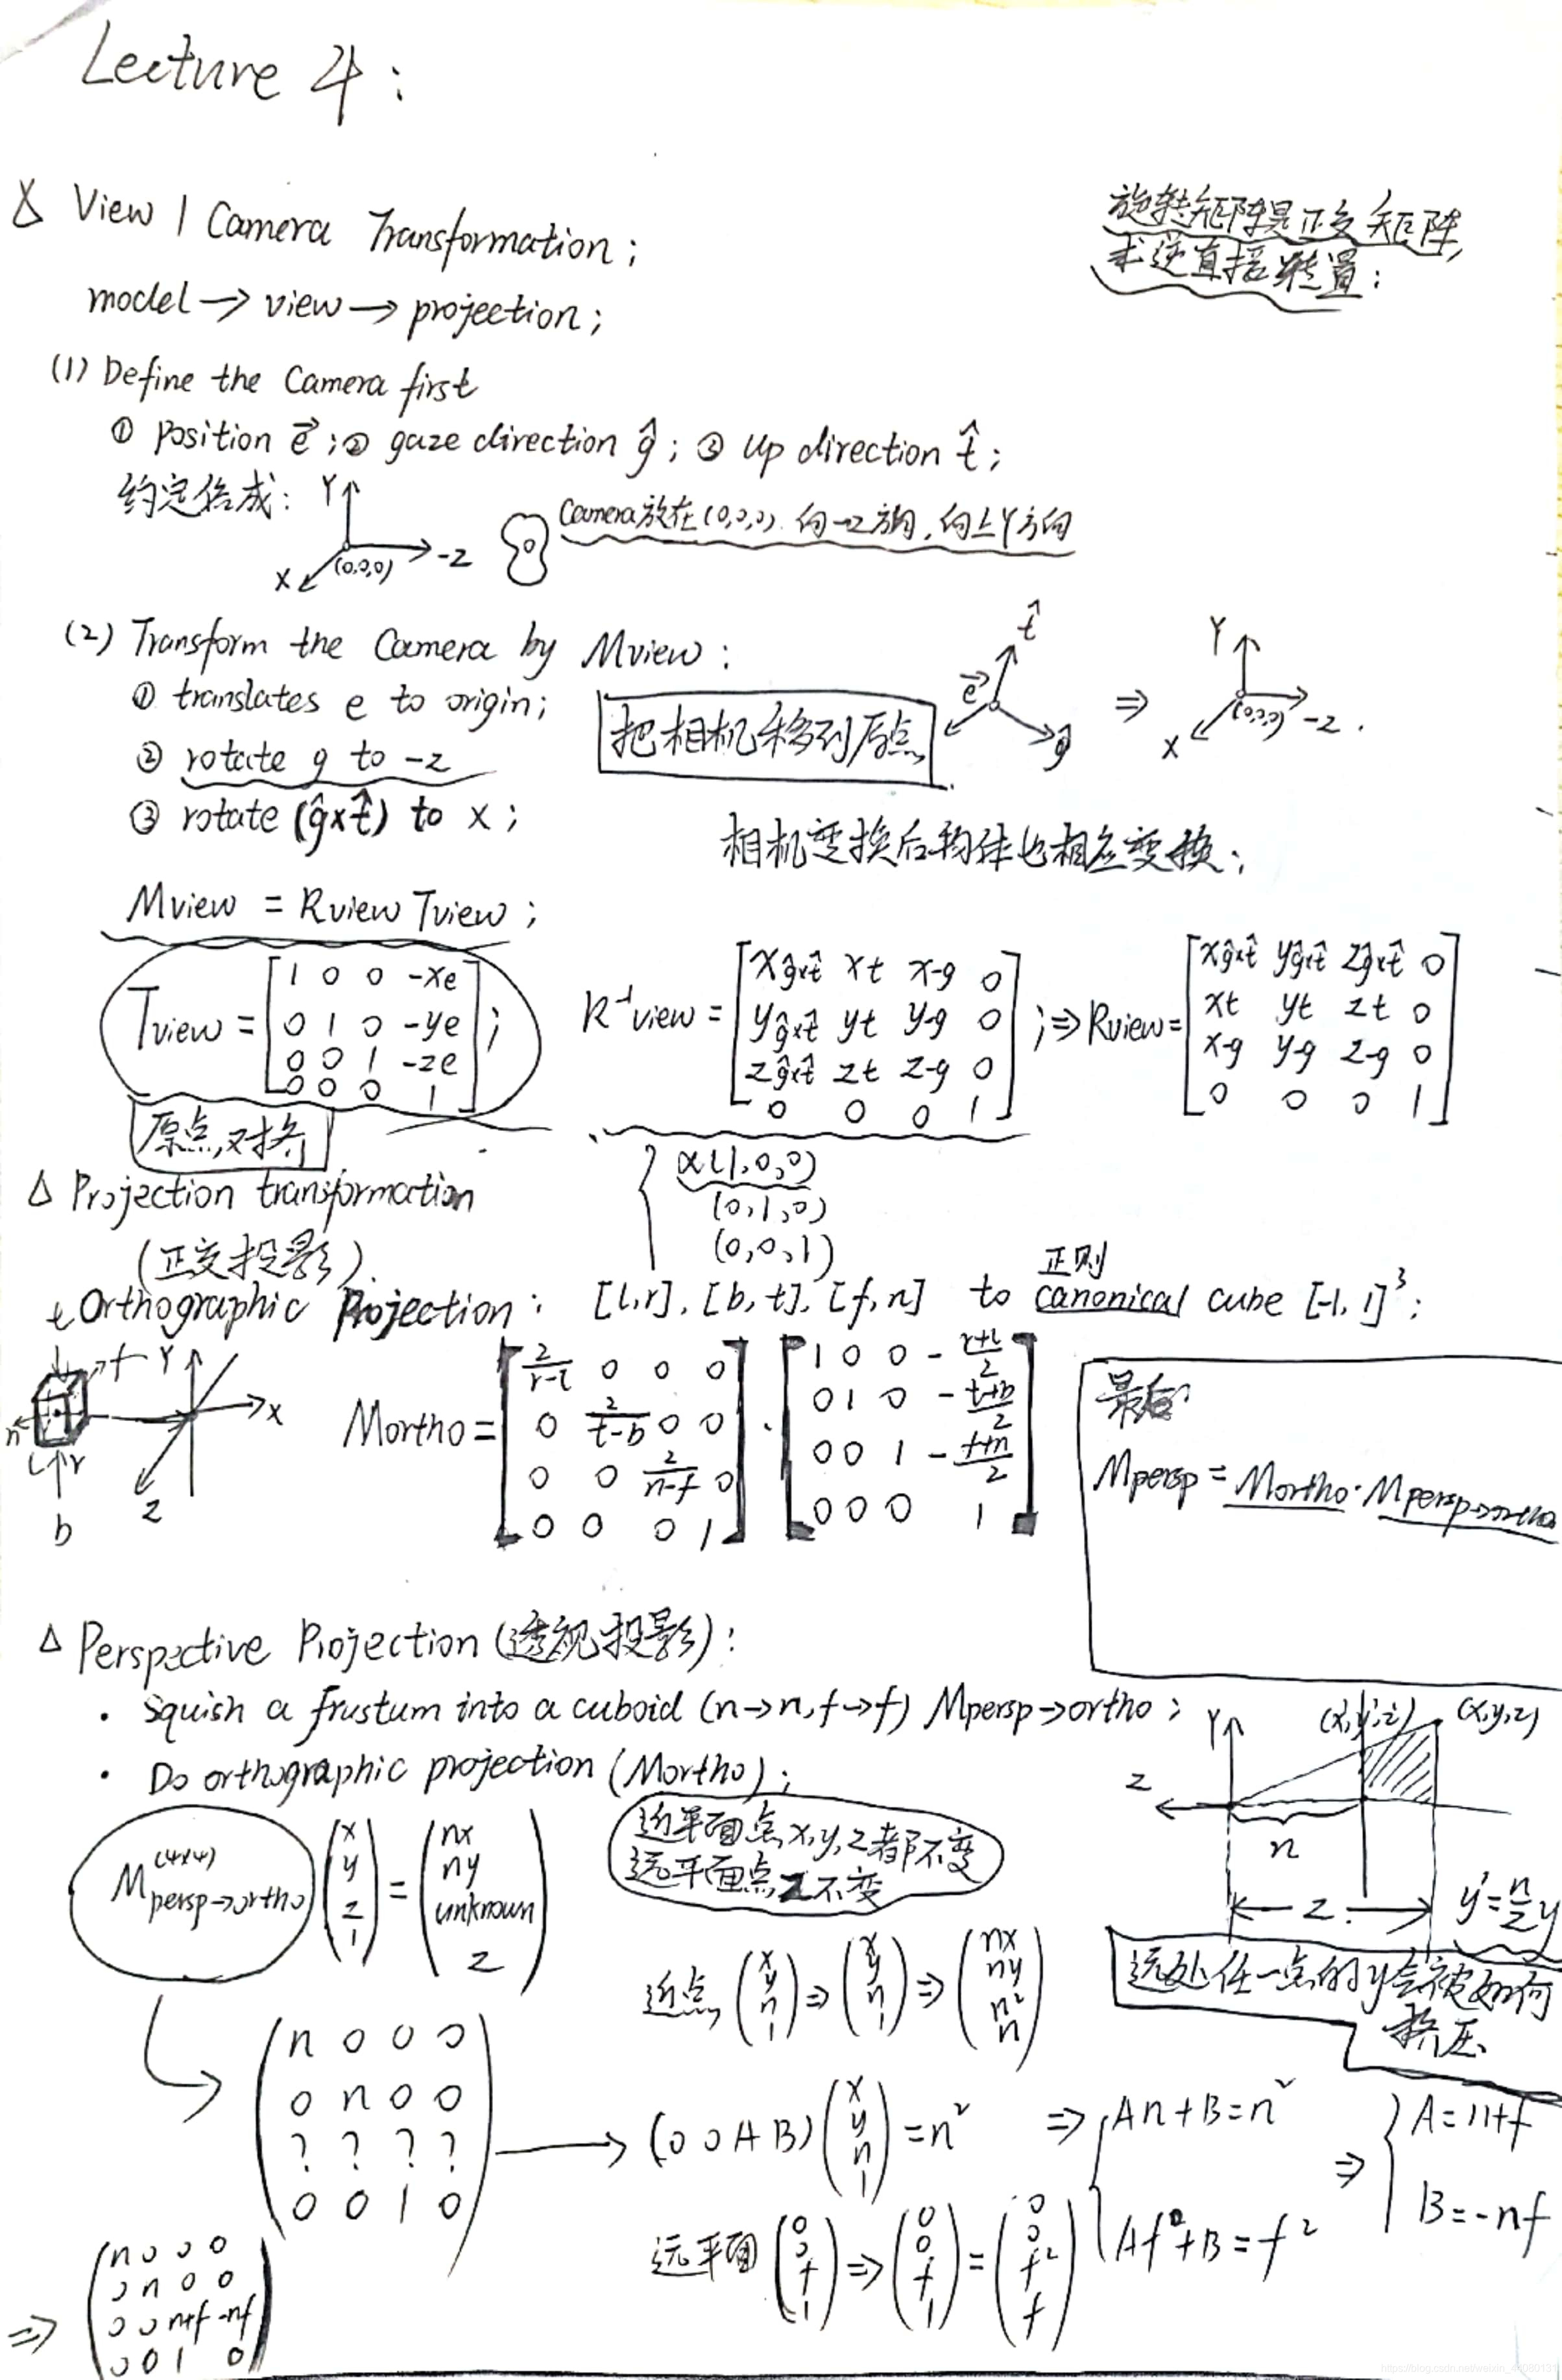 Lecture 4:
旋转矩阵是正交矩阵,
求逆直接转置;
Δ View / Camera Transformation;
model → view → projection;
(1) Define the Camera first
① Position e⃗; ② gaze direction ĝ; ③ Up direction t̂;
约定俗成: Y X (0,0,0) -Z Camera放在(0,0,0) 向-Z方向, 向上Y方向
(2) Transform the Camera by Mview:
① translates e to origin;
② rotate g to -z
③ rotate (ĝ×t̂) to x;
把相机移到原点
t̂ e⃗ ĝ ⇒ Y X (0,0,0) -Z.
相机变换后物体也相应变换;
Mview = Rview Tview;
Tview = [1 0 0 -xe
0 1 0 -ye
0 0 1 -ze
0 0 0 1];
R⁻¹view = [xĝ×t̂ xt x-g 0
yĝ×t̂ yt y-g 0
zĝ×t̂ zt z-g 0
0 0 0 1]; ⇒
Rview = [xĝ×t̂ yĝ×t̂ zĝ×t̂ 0
xt yt zt 0
x-g y-g z-g 0
0 0 0 1]
原点对齐
x(1,0,0)
(0,1,0)
(0,0,1)
Δ Projection transformation
(正交投影).
Orthographic Projection: [l,r], [b,t], [f,n] to canonical cube [-1,1]³;
正则
f n l r b Y X Z
Mortho = [2/(r-l) 0 0 0
0 2/(t-b) 0 0
0 0 2/(n-f) 0
0 0 0 1] ·
[1 0 0 -(r+l)/2
0 1 0 -(t+b)/2
0 0 1 -(f+n)/2
0 0 0 1]
最后:
Mpersp = Mortho · Mpersp→ortho
Δ Perspective Projection (透视投影):
· Squish a frustum into a cuboid (n→n, f→f) Mpersp→ortho;
· Do orthographic projection (Mortho);
Y (x',y',z') (x,y,z)
z
n
z
y' = n/z y
远处任一点的y会被如何
挤压
M(4×4)persp→ortho (x y z 1) = (nx ny unknown z)
近平面点x,y,z都不变
远平面点z不变
近点 (x y n 1) ⇒ (x y n 1) ⇒ (nx ny n² n)
(n 0 0 0
0 n 0 0
? ? ? ?
0 0 1 0)
→ (0 0 A B) (x y n 1) = n²
⇒ { An+B=n²
Af+B=f²
⇒ { A=n+f
B=-nf
远平面 (0 0 f 1) ⇒ (0 0 f 1) = (0 0 f² f)
⇒ (n 0 0 0
0 n 0 0
0 0 n+f -nf
0 0 1 0)